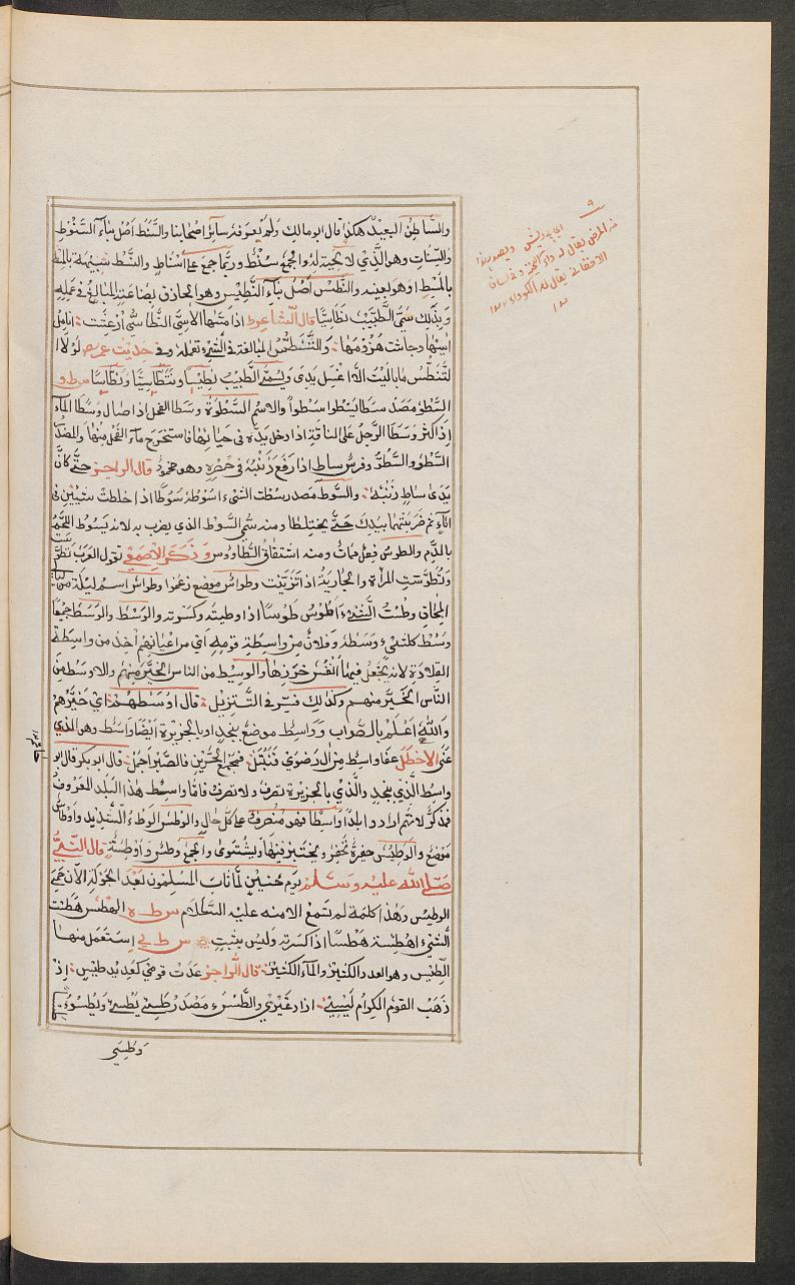 والشاطن البعيد هكذا قال ابو مالك ولم يعرفه سائر اصحابنا والسنط اصل بناء السنوط
والسناط وهو الذي لا لحية له والجمع سنط وربما جمع على اسناط والسنط شبيهة بالمنط
بالمسط او هو بعينه والنطس أصل بناء النطيس وهو الحاذق بصناعته المبالغ في عمله
وبذلك سمى الطبيب نطاسيا قال الشاعر ط اذا متها الآسى النطاسى أزعشت انامل
آسيها وجاشت هزومها والتنطس المبالغة في الشيء تعمله وفي حديث عمر رضه لولا
التنطس ما باليت الا اغسل يدى ويسمى الطبيب نطيسا ونطاسيا ونطاسا س ط و
السطو مصدر سطا يسطوا سطوا والاسم السطوة وسطا الفحل اذا صال وسطا الماء
إذا كثر وسطا الرجل على الناقة اذا ادخل يده في حيائها فاستخرج ماء الفحل منها والمصدر
السطو والسطو وفرس ساط اذا رفع ذنبه في حضره وهو محمود قال الراجز حتى كان
يدى ساط ذنبه والسوط مصدر سطت الشيء اسوطه سوطا اذا خلطت شيئين في
اناء ثم ضربتهما بيدك حتى يختلطا ومنه سمى السوط الذي يضرب به لانه يسوط اللحم
بالدم والطوس فعل ممات ومنه اشتقاق الطاووس وذكر الاصمعي تقول العرب تطوست
وتطوست المرأة والجارية اذا تزينت وطواس موضع زعموا وطواس اسم ليلة من ليالي
المحاق وطست الشيء اطوس طوسا اذا وطيته وكسرته والوسط والوسط جميعا
وسط كلشيء وسطه وفلان من واسطة قومه اي من اعيانهم اخذ من واسطة
القلادة لانه يجعل فيها أنفس خرزها والوسيط من الناس الخير منهم والاوسط من
الناس الخير منهم وكذلك فسر في التنزيل قال اوسطهم اي خيرهم
والله اعلم بالصواب وواسط موضع بنجد او بالجزيرة ايضا واسط وهو الذي
عنى الاخطل عفا واسط من آل رضوى فنبتل فمجمع الحرين فالصبر اجمل قال ابو بكر قال ابو
واسط الذي بنجد والذي بالجزيرة تصرف ولا تصرف فاما واسط هذا البلد المعروف
فمذكر لانهم ارادوا بلدا واسطا فهو منصرف على كل حال والوطس الوطء الشديد واوطاس
موضع والوطيس حفرة تحفر ويختبز فيها ويشتوى والجمع وطس واوطسة قال النبي
صلى الله عليه وسلم يوم حنين لما ثاب المسلمون بعد الجولة الآن حمي
الوطيس وهذا كلمة لم تسمع الا منه عليه السلام س ط ه الهطس هطست
الشيء اهطسه هطسا اذا كسرته وليس بثبت س ط ي استعمل منها
الطيس وهو العدد الكثير والماء الكثير قال الراجز عددت قومي كعديد طيس إذ
ذهب القوم الكرام ليسي اذا رغيري والطسء مصدر طسئ يطسئ ويطسوء
وطسئ